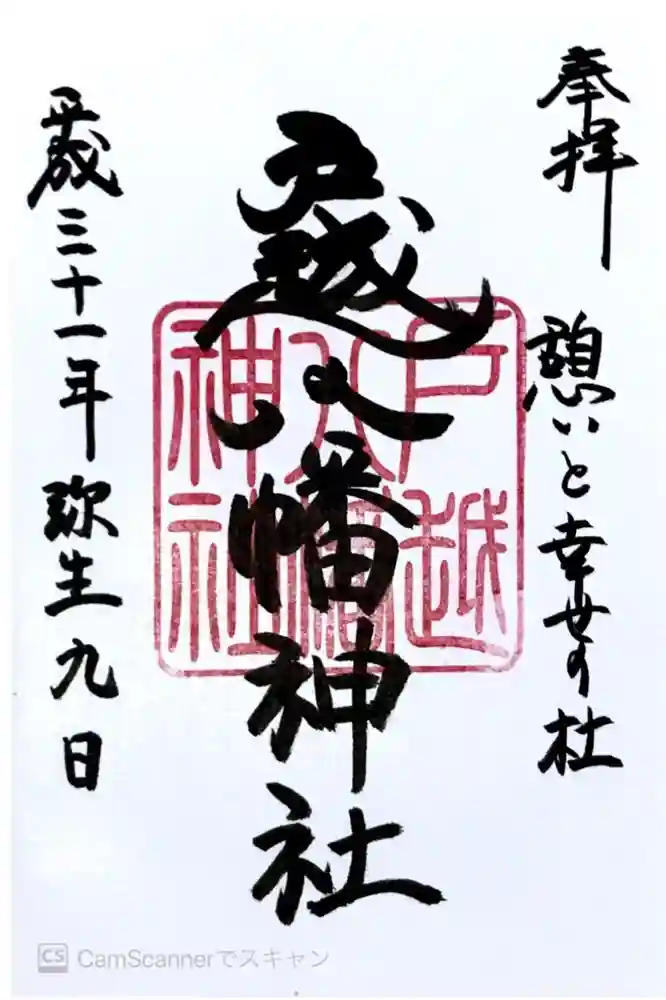 奉拝 憩いと幸せの杜
戸越八幡神社
戸越
八幡
神社
平成三十一年弥生九日
CS CamScannerでスキャン